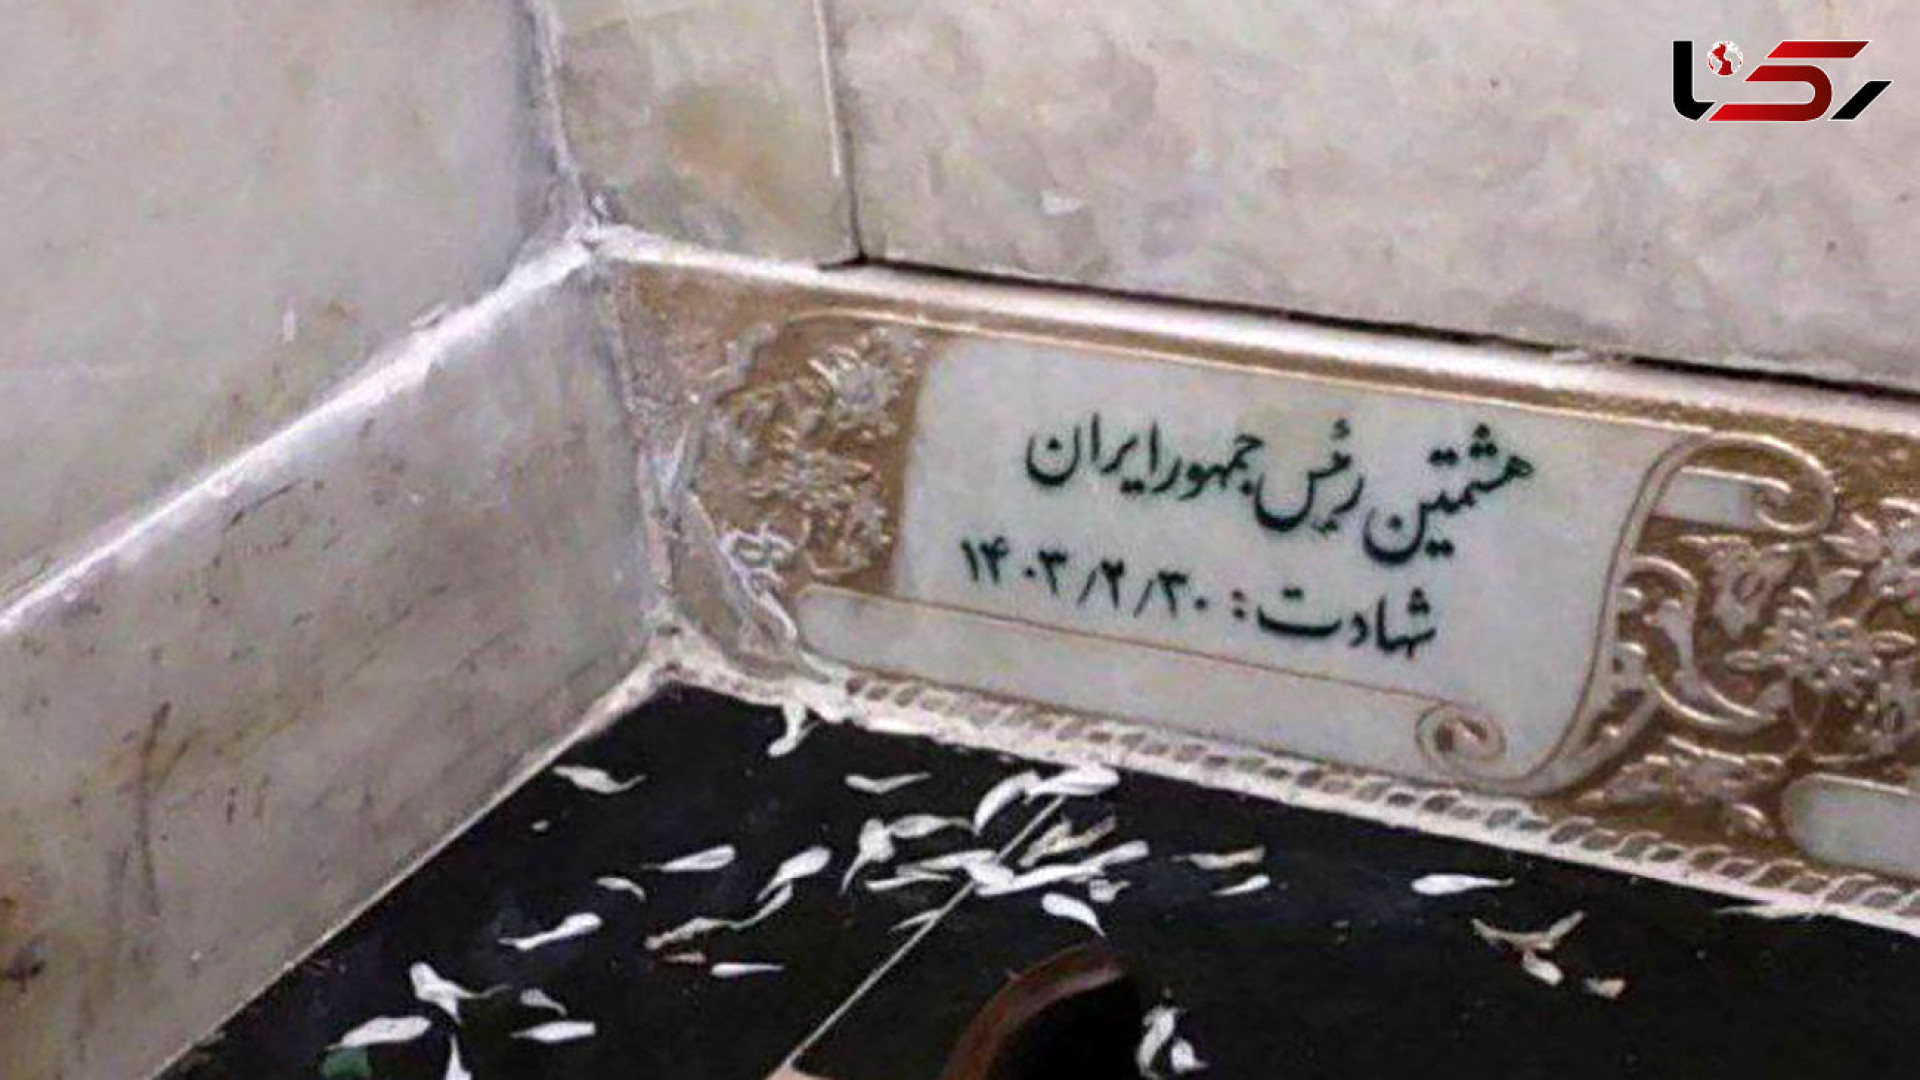 رکنا
هشتمین رئیس جمهور ایران
شهادت: ۱۴۰۳/۲/۳۰